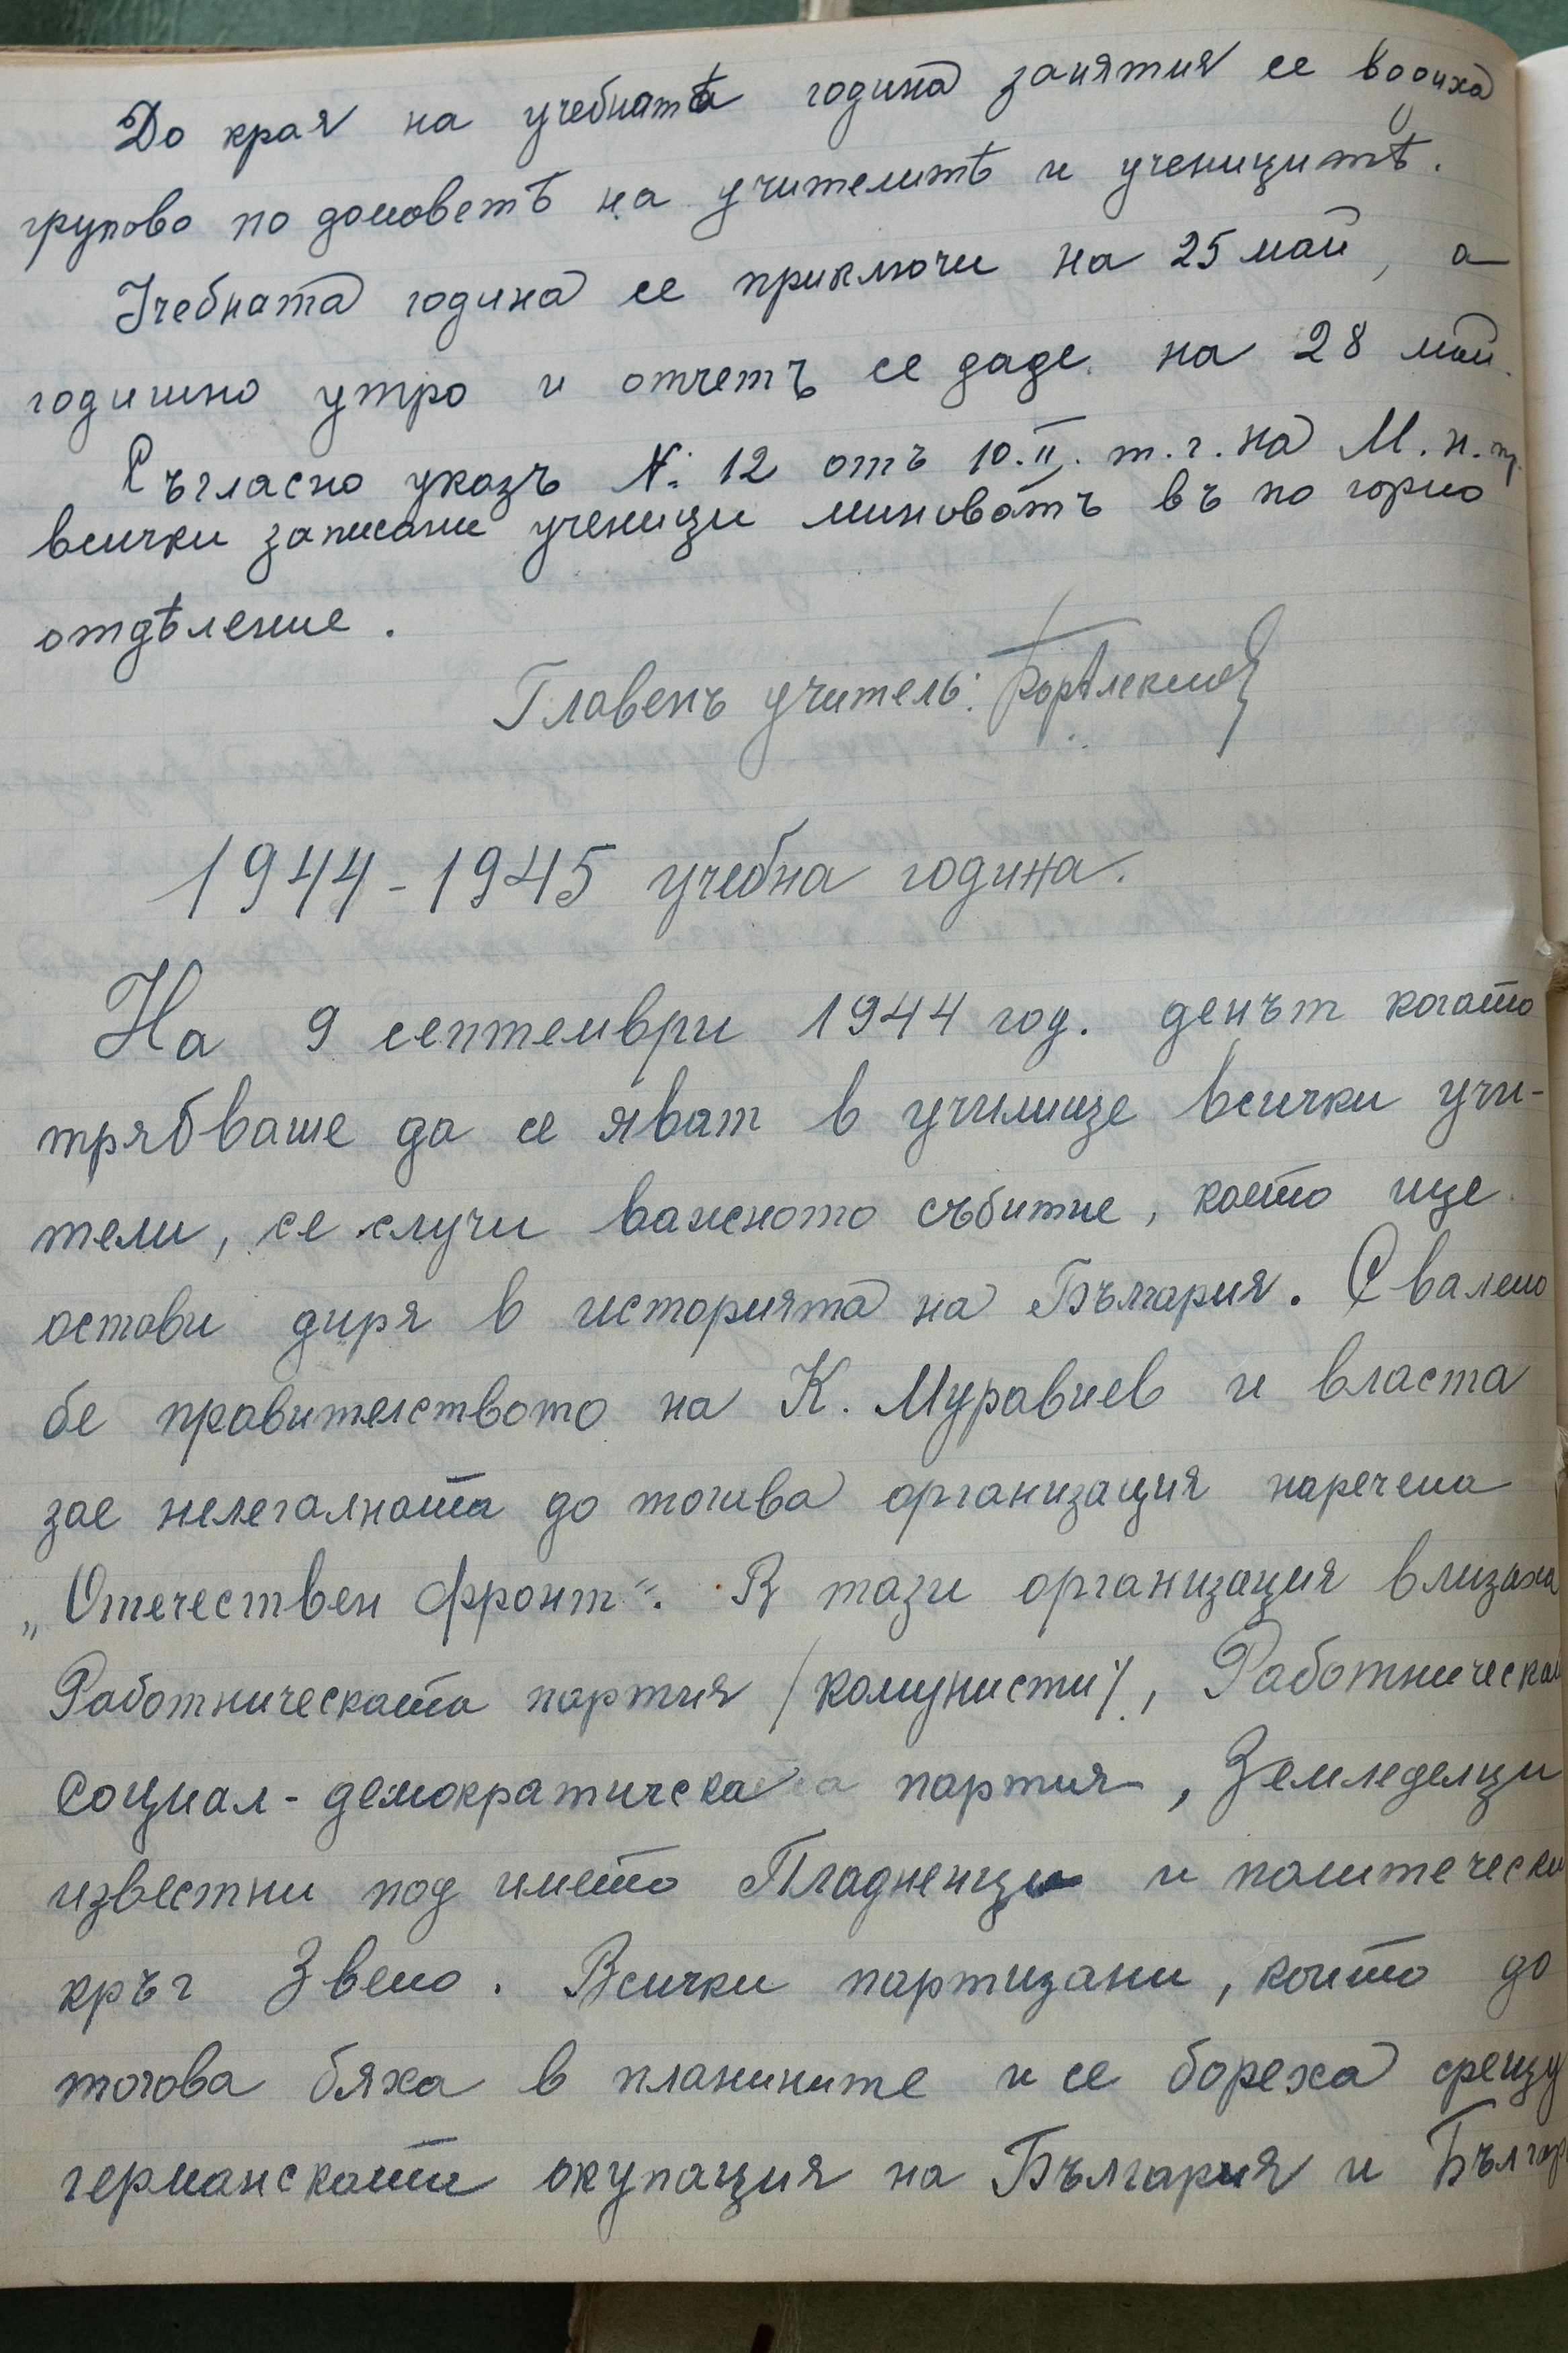 До края на учебната година занятия се водиха
групово по домоветѣ на учителитѣ и ученицитѣ.
Учебната година се приключи на 25 май, а
годишно утро и отчетъ се даде на 28 май.
Съгласно указъ №: 12 отъ 10.II. т.г. на М.н.пр.
всички записани ученици миноватъ въ по горно
отдѣление.
Главенъ учитель:
1944-1945 учебна година.
На 9 септември 1944 год. денът когато
трябваше да се яват в училище всички учи-
тели, се случи важното събитие, което ще
остави диря в историята на България. Свалено
бе правителството на К. Муравиев и власта
зае нелегалната до тогива организация наречена
„Отечествен фронт". В тази организация влизаха
Работническата партия /комунисти/, Работническа
социал-демократическата партия, Земледелци
известни под името Пладненци и политически
кръг Звено. Всички партизани, които до
тогова бяха в планините и се бореха срещу
германската окупация на България и Българ